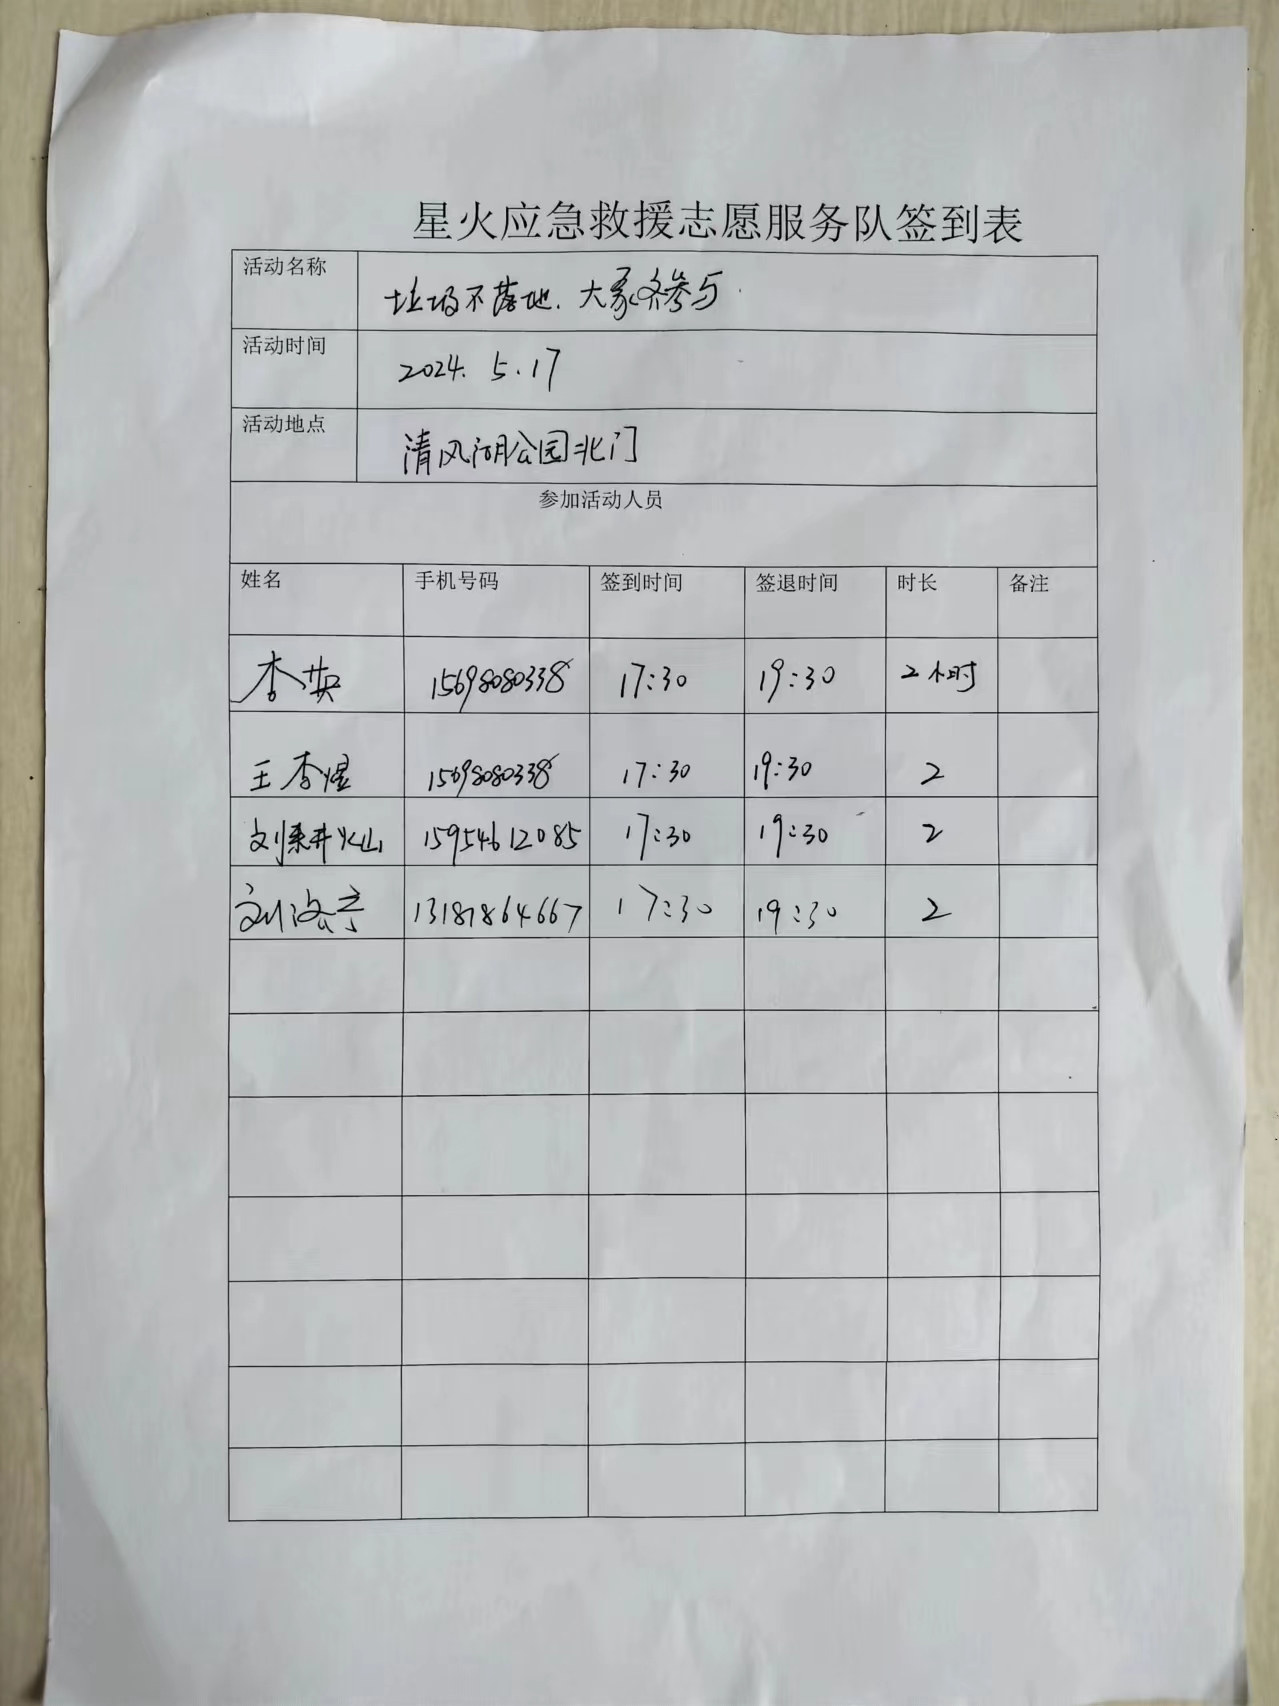 星火应急救援志愿服务队签到表
活动名称 垃圾不落地.大家齐参与.
活动时间 2024.5.17
活动地点 清风湖公园北门
参加活动人员
姓名 手机号码 签到时间 签退时间 时长 备注
李英 15698080338 17:30 19:30 2小时
王李煜 15698080338 17:30 19:30 2
刘 15954612085 17:30 19:30 2
刘 13181864667 17:30 19:30 2